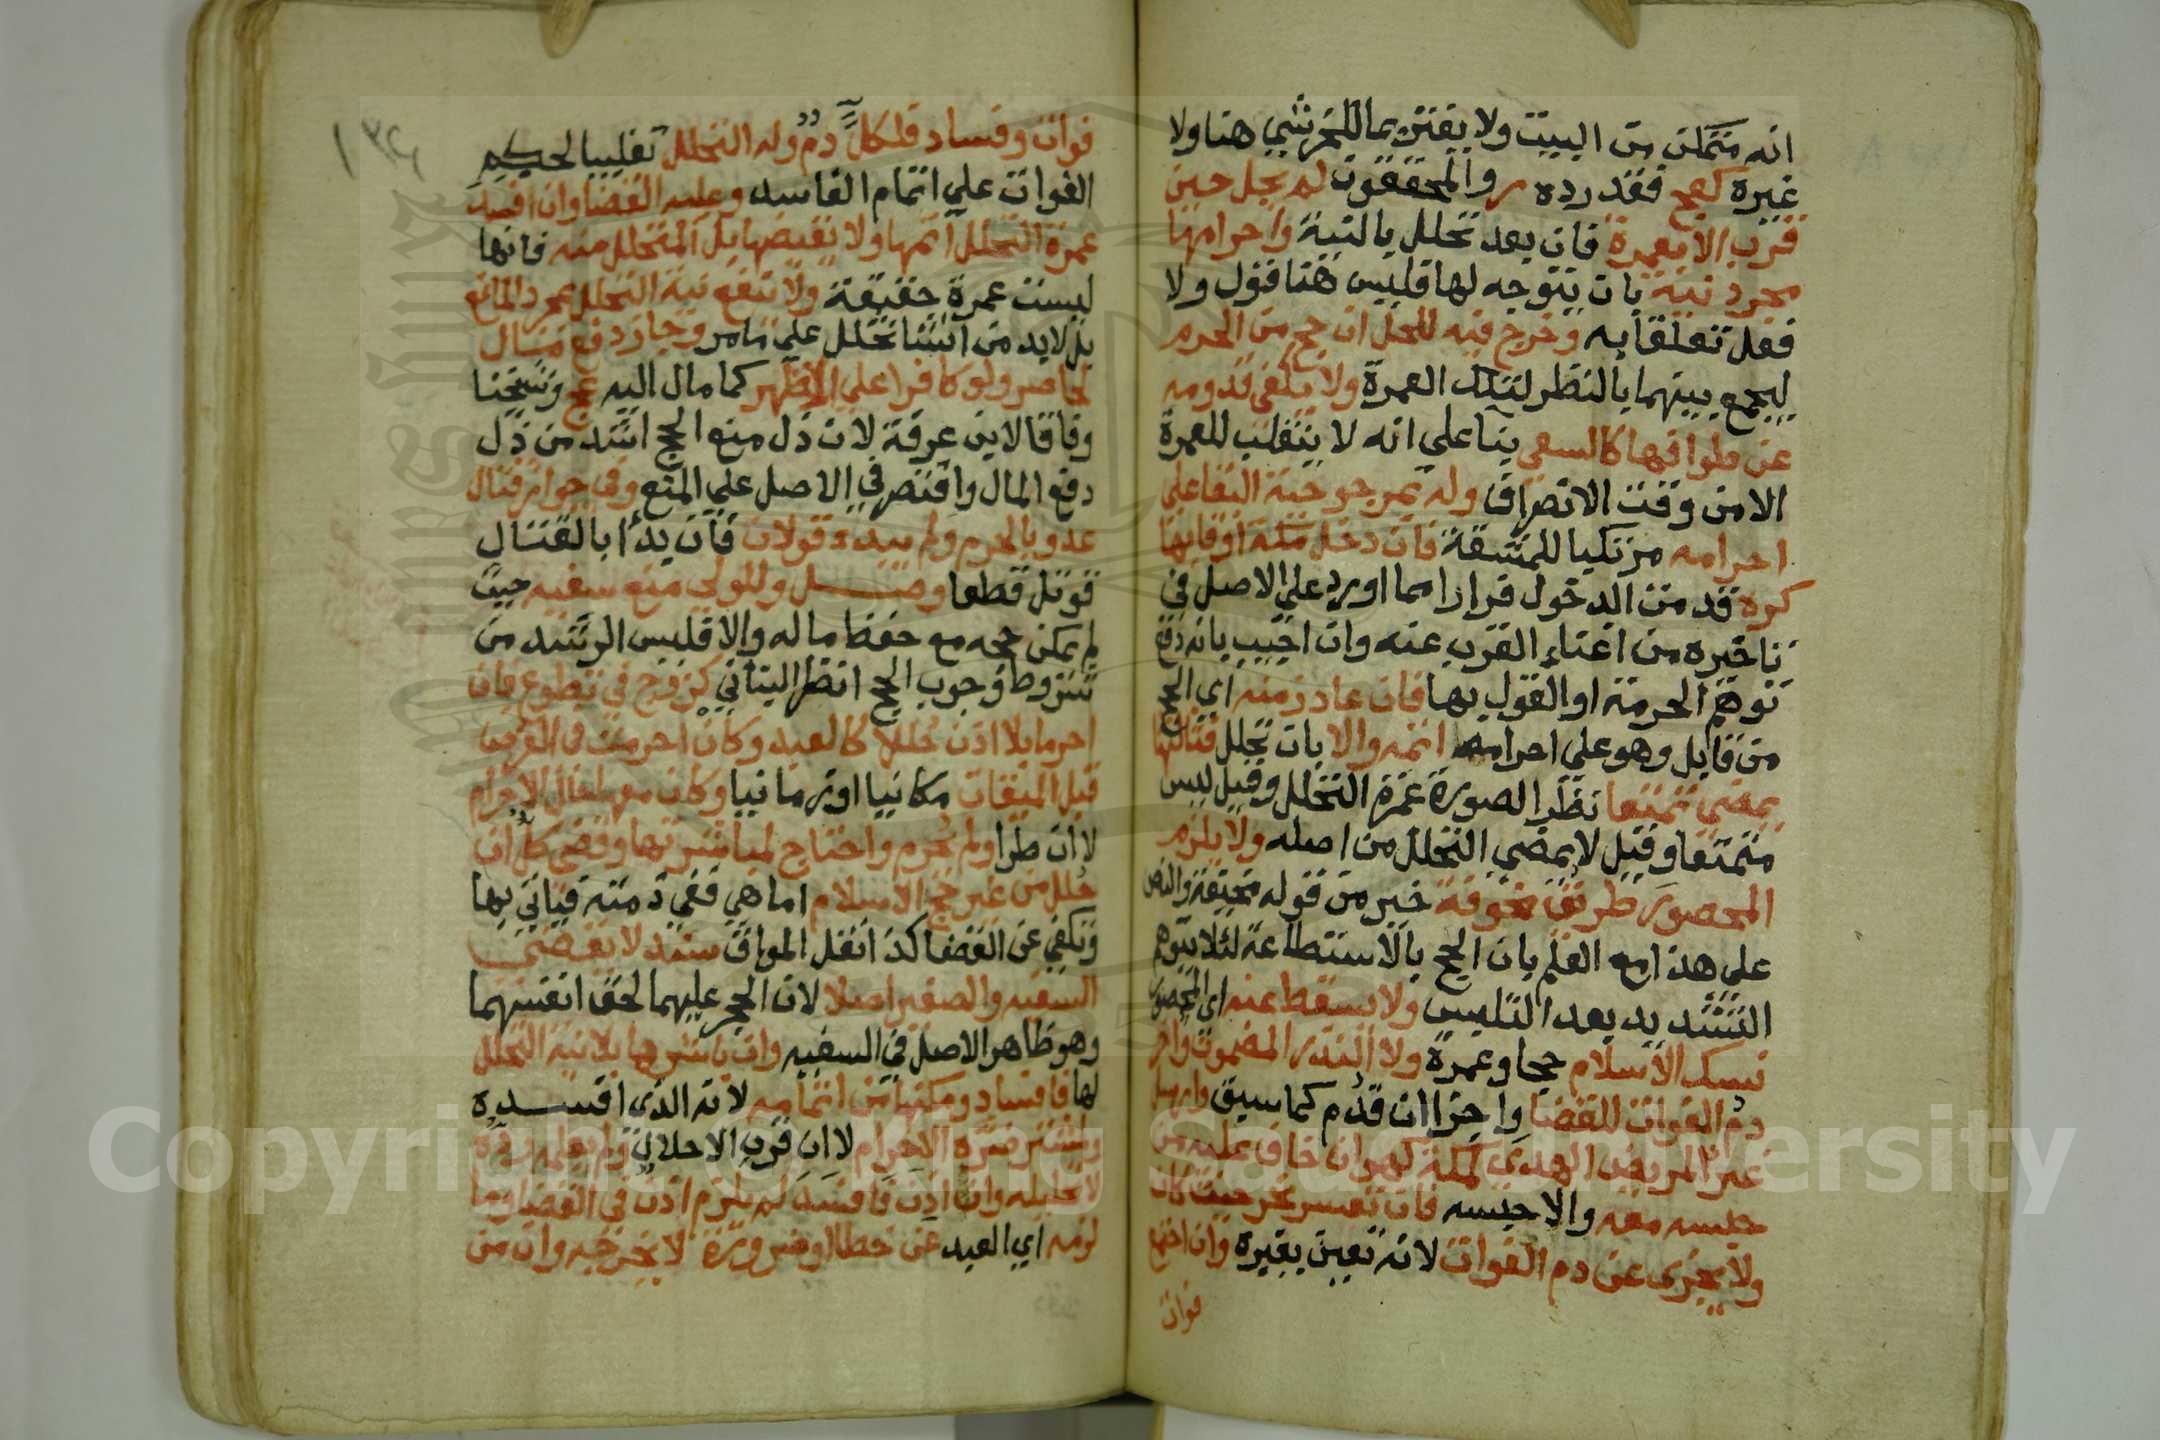 انه متمكن من البيت ولا يغتر بما للخرشي هنا ولا
غيره كعج فقد رده ر والمحققون لم يحل حين
قرب الا بعمرة فان بعد تحلل بالنية واحرامها
مجرد نية بان يتوجه لها قليس هنا قول ولا
فعل تعلقا به وخرج فيه للحل ان حج من الحرم
ليجمع بينهما بالنظر لتلك العمرة ولا يكفي قدومه
عن طوافها كالسعي بنا علي انه لا ينقلب للعمرة
الا من وقت الانصراف وله بمرجوحية البقا علي
احرامه مرتكبا للمشقة فان دخل مكة او قاربها
كره قد من الدخول فرارا مما اورد علي الاصل في
تاخيره من اغناء القرب عنه وان اجيب بانه دفع
توهم الحرمة او القول بها فان عاد زمنه اي الحج
من قابل وهو علي احرامه اتمه والا بان تحلل فثالثها
يمضي تمتعا نظرا لصورة عمرة التحلل وقيل ليس
متمتعا وقيل لا يمضي التحلل من اصله ولا يلزم
المحصور طريق مخوفة خير من قوله مخيفة والنص
علي هذا مع العلم بان الحج بالاستطاعة لئلا يتوهم
التشديد بعد التلبس ولا يسقط عنه اي المحصور
نسك الاسلام حجا وعمرة ولا النذر المضمون واخر
دم الفوات للقضا واجزا ان قدم كما سبق وارسل
غير المريض الهدي لمكة كهو ان خاف عليه من
حبسه معه والا حبسه فان تعسر نحر حيث كان
ولا يجزي عن دم الفوات لانه تعين بغيره وان اجتمع
فوات
١٣٤
فوات وفساد فلكل دم وله التحلل تغليبا لحكم
الفوات علي اتمام الفاسد وعليه القضا وان افسد
عمرة التحلل اتمها ولا يقضها بل المتحلل منه فانها
ليست عمرة حقيقة ولا تنفع نية التحلل بمجرد المانع
بل لا بد من انشا تحلل علي ما مر وجاز دفع مال
لحاصر ولو كافرا علي الاظهر كما مال اليه عج وشيخنا
وفاقا لابن عرفة لان ذل منع الحج اشد من ذل
دفع المال واقتصر في الاصل علي المنع وفي جواز قتال
عدو بالحرم ولم يبدء قولان فان بدأ بالقتال
قوتل قطعا وصل وللولي منع سفيه حيث
لم يمكن حجه مع حفظ ماله والا قليس الرشد من
شروط وجوب الحج انظر البناني كزوج في تطوع فان
احرما بلا اذن حللا كالعبد وكان احرمت في الفرض
قبل الميقات مكانيا او زمانيا وكان معها قبل الاحرام
لا ان طرا ولم يحرم واحتاج لمباشرتها وقضي كل ان
حلل من غير حج الاسلام اما هي ففي ذمته فياتي بها
وتكفي عن القضا كذا نقل المواق سند لا يقضي
السفيه والصغير اصلا لان الحجر عليهما لحق انفسهما
وهو ظاهر الاصل في السفيه وان باشرها بلا نية التحلل
لها فافساد ومكنها من اتمامه لانه الذي افسده
ولمشتر ضره الاحرام لا ان قرب الاحلال ولم يعلم رده
لا تحليله وان اذن فافسد لم يلزم اذن في القضا وما
لزمه اي العبد عن خطا او ضرورة لا يخرجه وان من